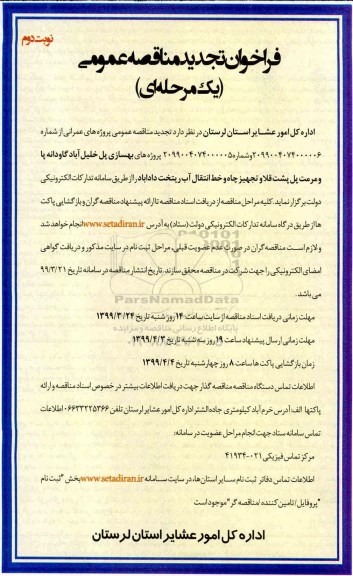 نوبت دوم
فراخوان تجدید مناقصه عمومی
(یک مرحله‌ای)
اداره کل امور عشایر استان لرستان در نظر دارد تجدید مناقصه عمومی پروژه های عمرانی از شماره
۲۰۹۹۰۰۴۰۷۴۰۰۰۰۰۶ وشماره ۲۰۹۹۰۰۴۰۷۴۰۰۰۰۰۵ پروژه های بهسازی پل خلیل آباد گاودانه پا
و مرمت پل پشت قلا و تجهیز چاه و خط انتقال آب ریتخت داداباد را از طریق سامانه تدارکات الکترونیکی
دولت برگزار نماید. کلیه مراحل مناقصه از دریافت اسناد مناقصه تا ارائه پیشنهاد مناقصه گران و بازگشایی پاکت
ها از طریق درگاه سامانه تدارکات الکترونیکی دولت (ستاد) به آدرس www.setadiran.ir انجام خواهد شد
و لازم است مناقصه گران در صورت عدم عضویت قبلی، مراحل ثبت نام در سایت مذکور و دریافت گواهی
امضای الکترونیکی را جهت شرکت در مناقصه محقق سازند. تاریخ انتشار مناقصه در سامانه تاریخ ۹۹/۳/۲۱
می باشد.
ParsNamadData
پایگاه اطلاع رسانی مناقصه و مزایده
مهلت زمانی دریافت اسناد مناقصه از سایت ساعت: ۱۴ روز شنبه تاریخ ۱۳۹۹/۳/۲۴
مهلت زمانی ارسال پیشنهاد ساعت ۱۹ روز سه شنبه تاریخ ۱۳۹۹/۴/۳
زمان بازگشایی پاکت ها ساعت ۸ روز چهارشنبه تاریخ ۱۳۹۹/۴/۴
اطلاعات تماس دستگاه مناقصه مناقصه گذار جهت دریافت اطلاعات بیشتر در خصوص اسناد مناقصه و ارائه
پاکتها الف: آدرس خرم آباد کیلومتری جاده الشتر اداره کل امور عشایر لرستان تلفن ۰۶۶۳۳۲۲۵۳۶۶ اطلاعات
تماس سامانه ستاد جهت انجام مراحل عضویت در سامانه:
مرکز تماس فیزیکی ۰۲۱-۴۱۹۳۴
اطلاعات تماس دفاتر ثبت نام سایر استان ها، در سایت سامانه www.setadiran.ir بخش "ثبت نام
"پروفایل/تامین کننده/مناقصه گر" موجود است
اداره کل امور عشایر استان لرستان